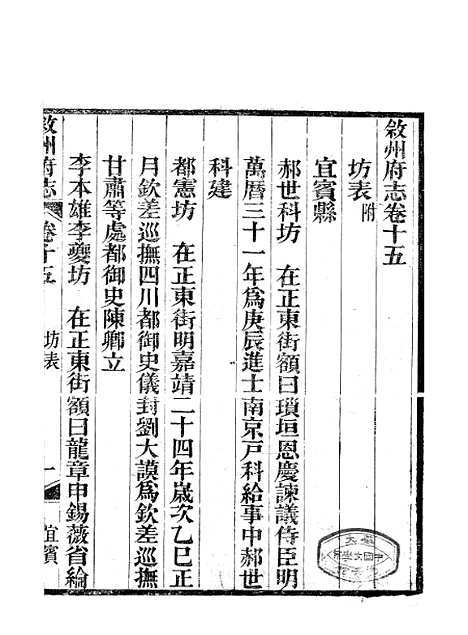 敘州府志卷十五
坊表附
宜賓縣
郝世科坊 在正東街額曰瑣垣恩慶諫議侍臣明
萬曆三十一年爲庚辰進士南京戸科給事中郝世
科建
都憲坊 在正東街明嘉靖二十四年歲次乙巳正
月欽差巡撫四川都御史儀封劉大謨爲欽差巡撫
甘肅等處都御史陳卿立
李本雄李夔坊 在正東街額曰龍章申錫薇省綸
敘州府志 卷十五 坊表 一 宜賓